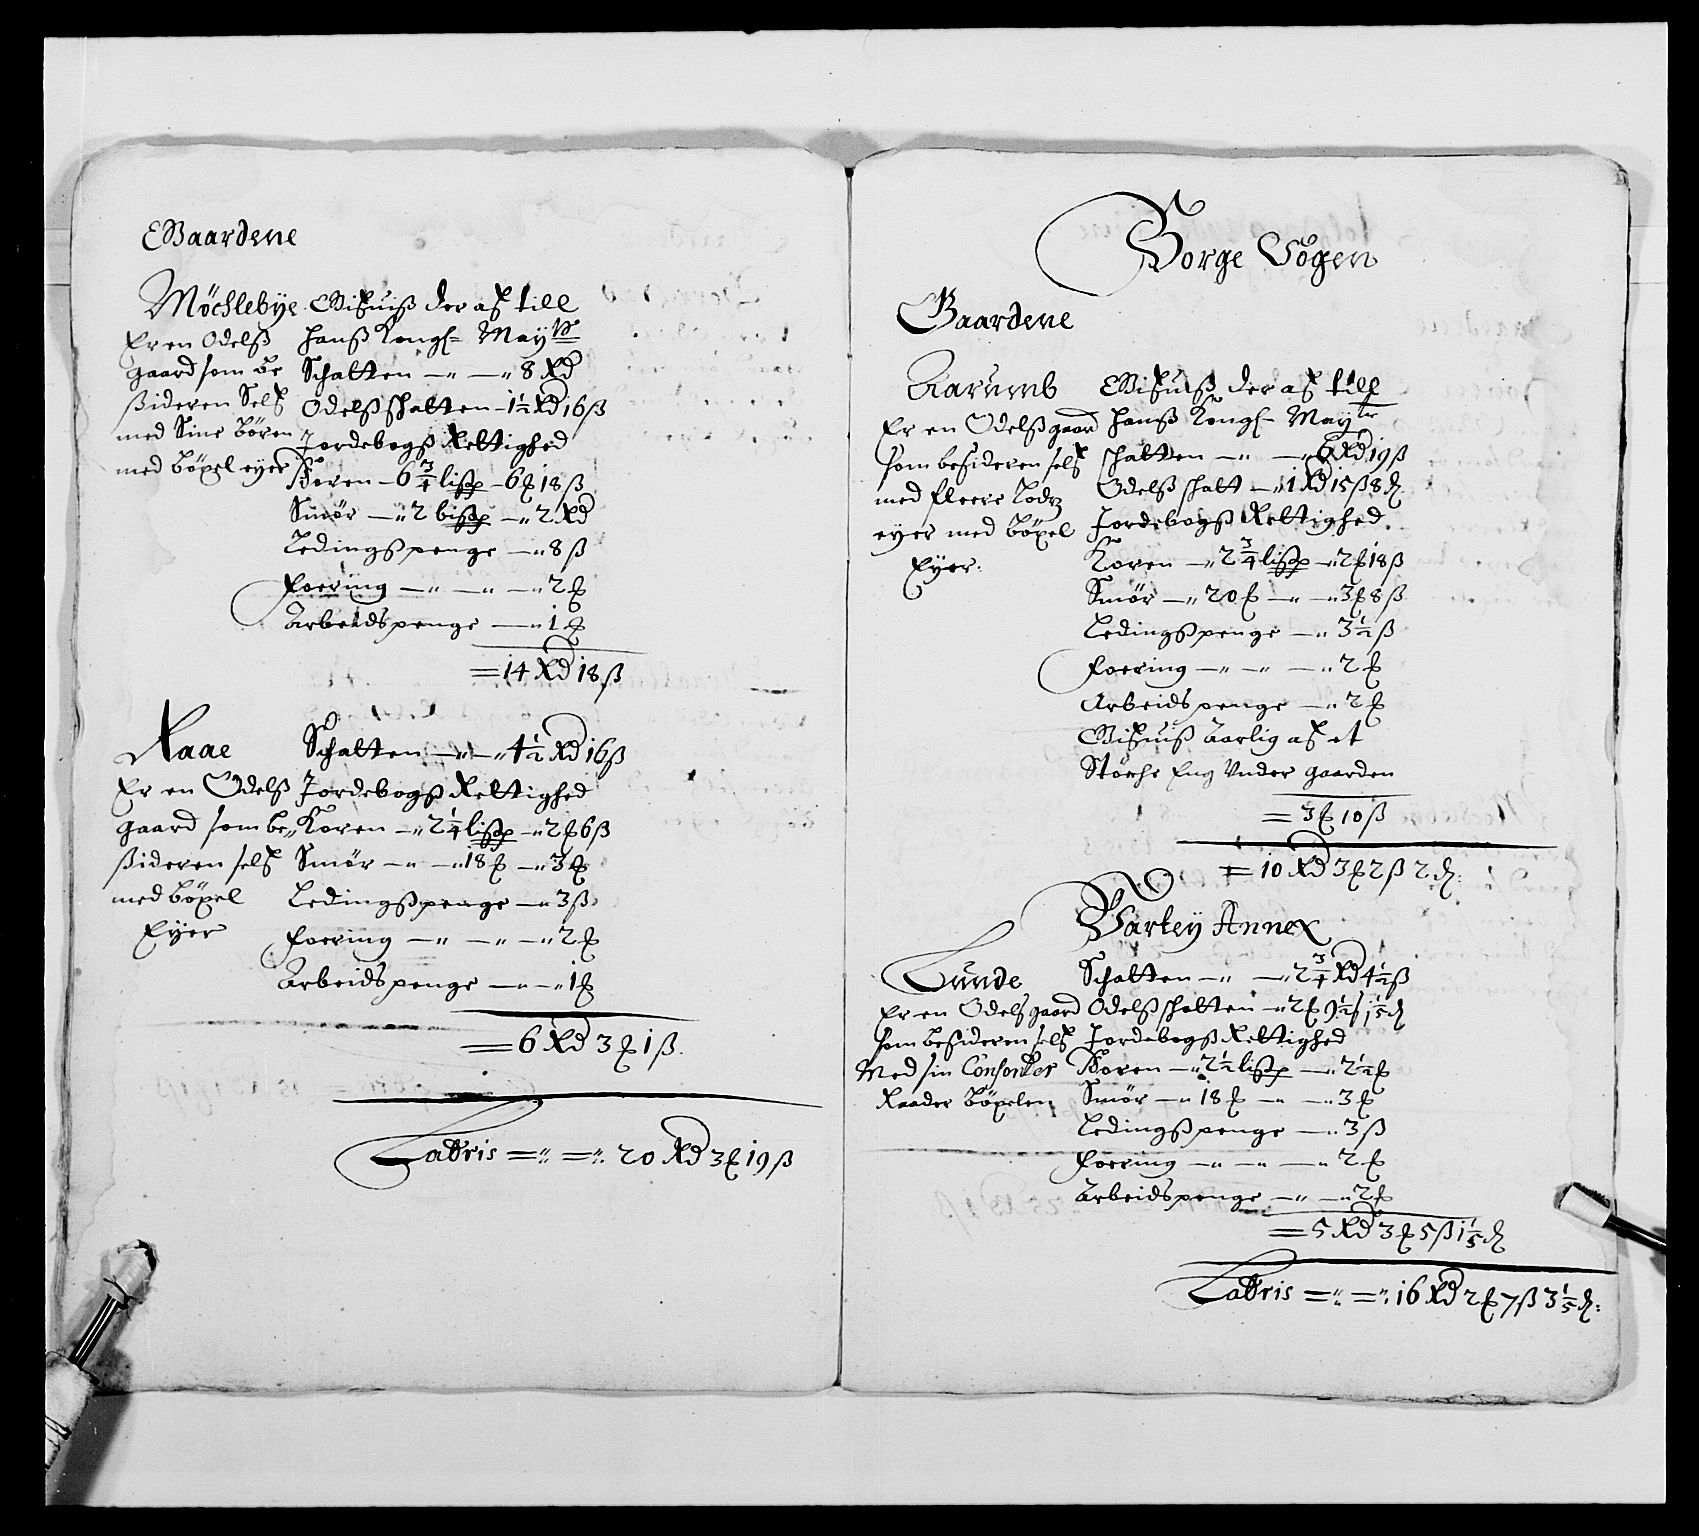 Gaardene
Møchlebye Gifuis der af till
Er en Odelsß hanß Kongl- Maytt
gaard som be Schatten — „ — „ 8 Rd
ßideren Self Odelßschatten - 1½ Rd 16 ß
med Sine Børen Jordebogß Rettighed
med bøxel eyer Koren — 6¾ lispp — 6 ₰ 18 ß
Smør — „ 2 bispp — „ 2 Rd
Ledingßpenge — „ 8 ß
Foering — „ — „ — „ 2 ₰
Arbeidspenge — „ 1 ₰
= 14 Rd 18 ß
Raae Schatten — „ — „ 4½ Rd 16 ß
Er en Odelß Jordebogß Rettighed
gaard som be„ Koren — „ 2¼ lispp — „ 2 ₰ 6 ß
ßideren self Smør — „ — „ 18 ₰ — „ 3 ₰
med bøxel Ledingßpenge — „ 3 ß
Eyer Foering — „ — „ — „ 2 ₰
Arbeidspenge — „ — „ 1 ₰
= 6 Rd 3 ₰ 1 ß
Lattris = „ = „ 20 Rd 3 ₰ 19 ß
Borge Sogen
Gaardene
Aarumb Gifuis der af till
Er en Odelßgaard hanß Kongl- Maytt
som besideren self schatten — „ — „ 6 Rd 19 ß
med fleere Lodtz Odelß schatt — „ 1 Rd 15 ß 8 ₰
eyer med bøxel Jordebogß Rettighed.
Eyer: Koren — „ 2¾ lispp — „ 2 ₰ 18 ß
Smør — „ 20 ₰ — „ — „ 3 ₰ 8 ß
Ledingßpenge — „ 3½ ß
Foering — „ — „ — „ 2 ₰
Arbeidspenge — „ 2 ₰
Gifuis Aarlig af et
Støche Eng Under gaarden
= 3 ₰ 10 ß
= 10 Rd 3 ₰ 2 ß 2 ₰:
Varley Annex
Lunde Schatten — „ — „ 2¾ Rd 4½ ß
Er en Odelsgaard Odelßschatten — „ 2 ₰ 9½ ß 1⅕ ₰
som besideren self Jordebogß Rettighed
Med sin Consorter Koren — „ 2½ lispp — „ 2½ ₰
Raader Bøxelen Smør — „ 18 ₰ — „ — „ 3 ₰
Ledingßpenge — „ 3 ß
Foering — „ — „ — „ 2 ₰
Arbeidspenge — „ — „ 2 ₰
= 5 Rd 3 ₰ 5 ß 1⅕ ₰
Lattris = „ = „ 16 Rd 2 ₰ 7 ß 3⅕ ₰: